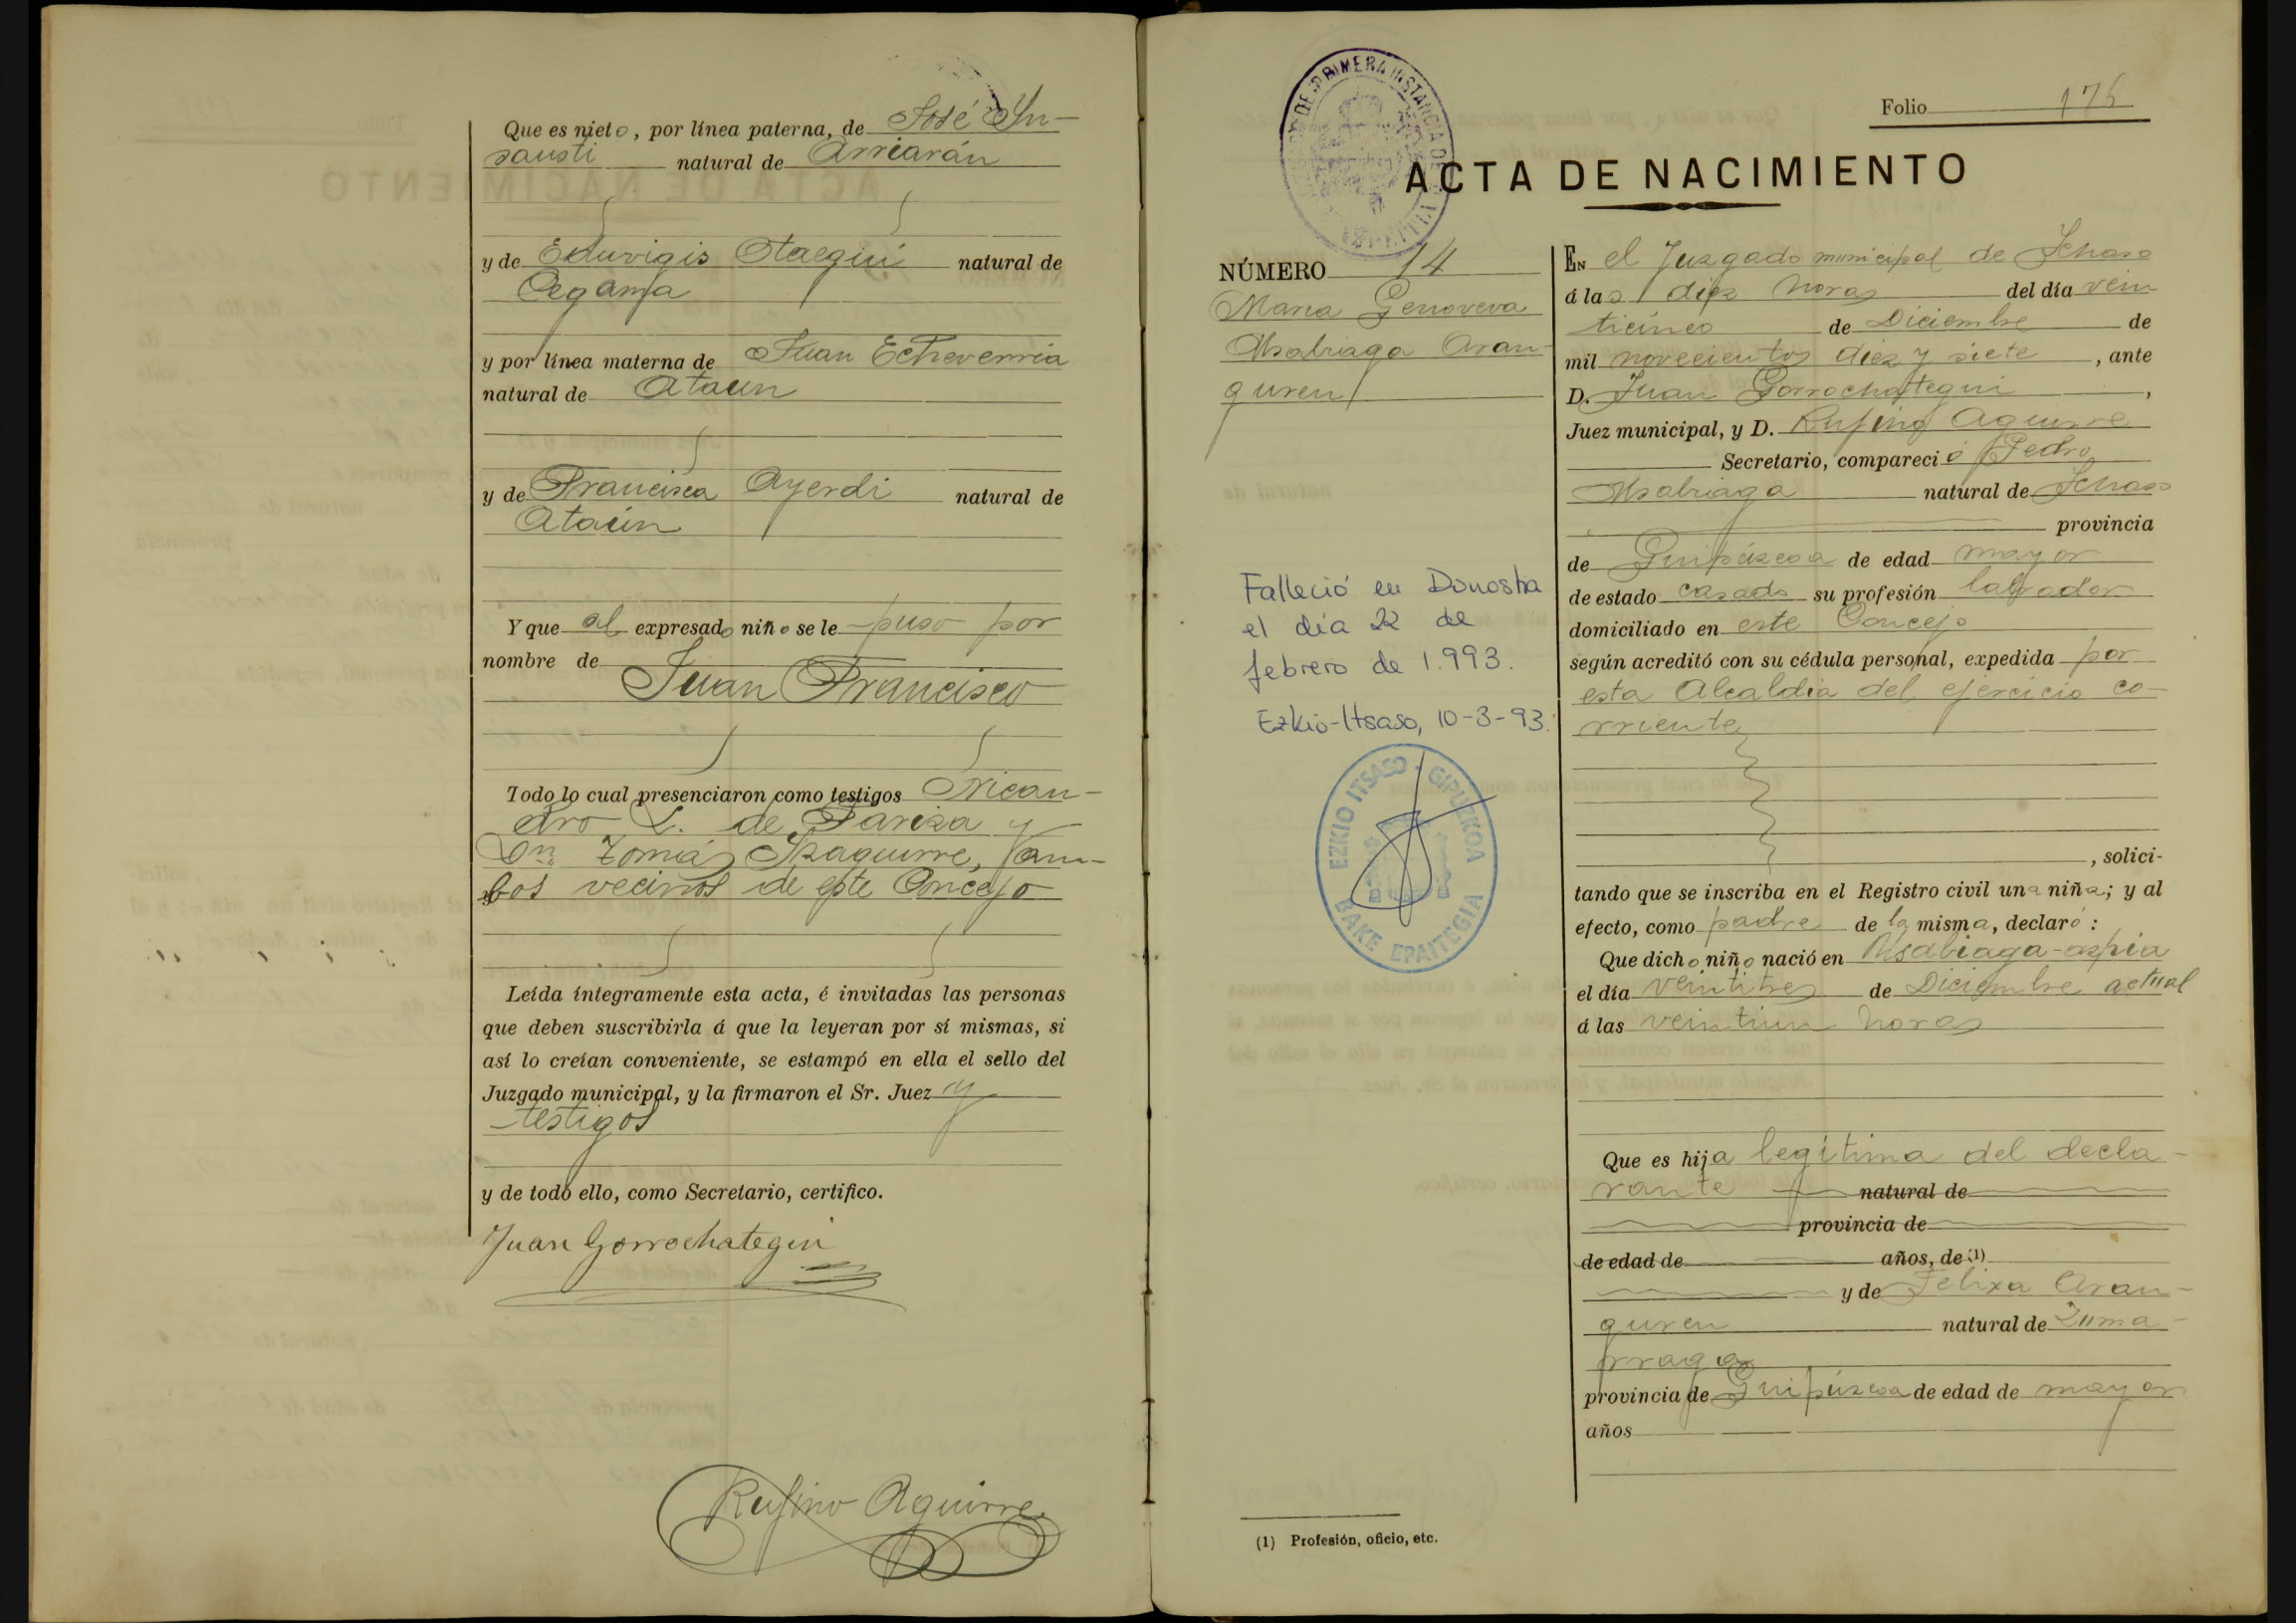 Que es nieto, por línea paterna, de José Yn-
sausti natural de Arriarán
y de Eduvigis Otaegui natural de
Cegama
y por línea materna de Juan Echeverria
natural de Ataun
y de Francisca Ayerdi natural de
Ataún
Y que al expresado niño se le puso por
nombre de
Juan Francisco
Todo lo cual presenciaron como testigos Nican-
dro L. de Pariza y
Dn. Tomás Yzaguirre, am-
bos vecinos de este Concejo
Leída íntegramente esta acta, é invitadas las personas
que deben suscribirla á que la leyeran por sí mismas, si
así lo creían conveniente, se estampó en ella el sello del
Juzgado municipal, y la firmaron el Sr. Juez y
testigos
y de todo ello, como Secretario, certifico.
Juan Gorrochategui
Rufino Aguirre
Folio 176
PRIMERA INSTANCIA DE
ACTA DE NACIMIENTO
NÚMERO 14
Maria Genoveva
Usabiaga Aran-
guren
Falleció en Donostia
el día 22 de
febrero de 1.993.
Ezkio-Itsaso, 10-3-93.
EZKIO ITSASO - GIPUZKOA
BAKE EPAITEGIA
EN el Juzgado municipal de Ichaso
á las diez horas del día vein
ticinco de Diciembre de
mil novecientos diez y siete, ante
D. Juan Gorrochategui,
Juez municipal, y D. Rufino Aguirre
Secretario, compareció Pedro
Usabiaga natural de Ichaso
provincia
de Guipúzcoa de edad mayor
de estado casado su profesión labrador
domiciliado en este Concejo
según acreditó con su cédula personal, expedida por
esta Alcaldia del ejercicio co-
rriente
, solici-
tando que se inscriba en el Registro civil una niña; y al
efecto, como padre de la misma, declaró:
Que dicho niño nació en Usabiaga-azpia
el día veintitres de Diciembre actual
á las veintiun horas
Que es hija legítima del decla-
rante natural de
provincia de
de edad de años, de (1)
y de Felixa Aran-
guren natural de Zuma-
rraga
provincia de Guipúzcoa de edad de mayor
años
(1) Profesión, oficio, etc.